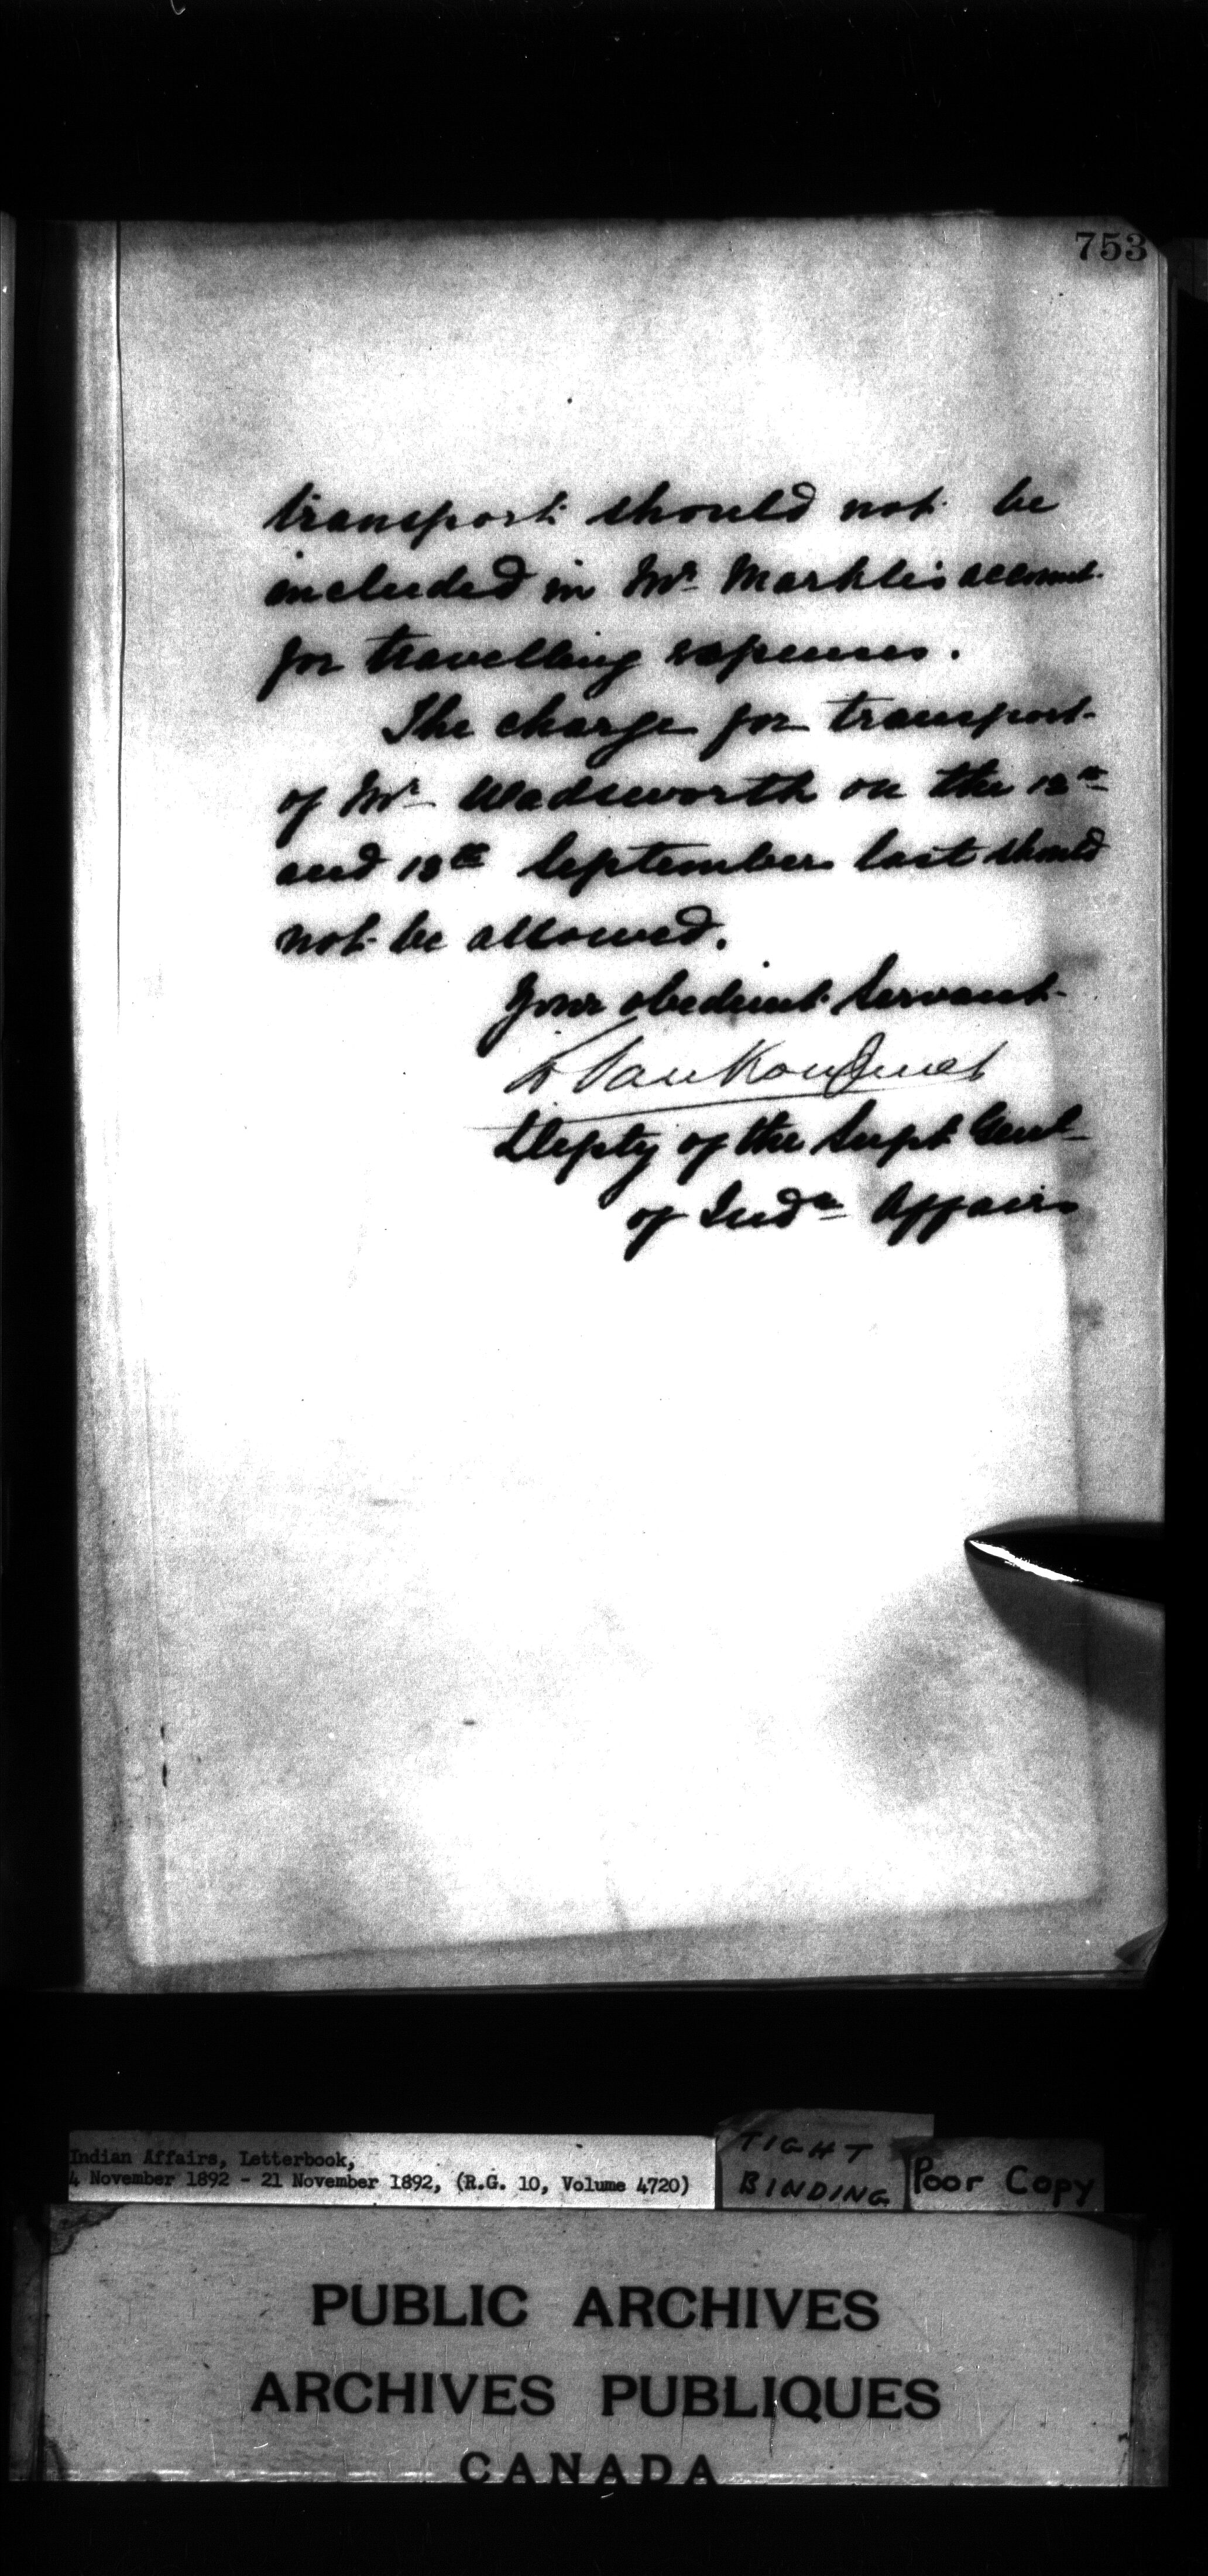 753
transport should not be
included in Mr. Markle's account
for travelling expenses.
The charge for transport
of Mr. Wadsworth on the 12th
and 13th September last should
not be allowed.
Your obedient Servant
L Vankoughnet
Depty of the Supt Genl
of Indn Affairs
Indian Affairs, Letterbook,
4 November 1892 - 21 November 1892, (R.G. 10, Volume 4720)
TIGHT
BINDING
Poor Copy
PUBLIC ARCHIVES
ARCHIVES PUBLIQUES
CANADA